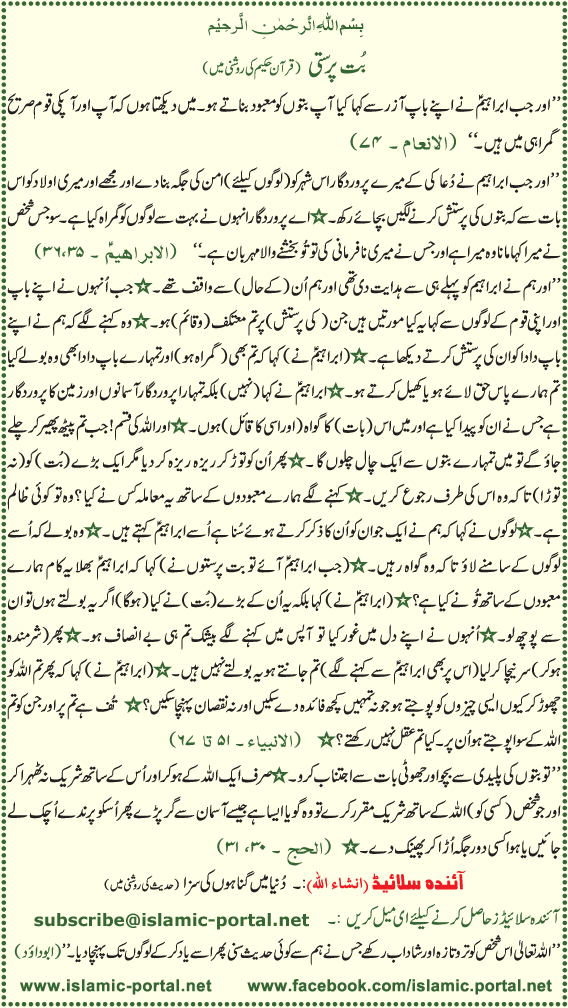 بِسْمِ اللہِ الرَّحْمٰنِ الرَّحِیْمِ
بُت پرستی (قرآن حکیم کی روشنی میں)
’’اور جب ابراہیمؑ نے اپنے باپ آزر سے کہا کیا آپ بتوں کو معبود بناتے ہو۔ میں دیکھتا ہوں کہ آپ اور آپکی قوم صریح
گمراہی میں ہیں۔‘‘ (الانعام ۔ ۷۴)
’’اور جب ابراہیم نے دُعا کی کے میرے پروردگار اس شہر کو (لوگوں کیلئے) امن کی جگہ بنا دے اور مجھے اور میری اولاد کو اس
بات سے کہ بتوں کی پرستش کرنے لگیں بچائے رکھ۔☆اے پروردگار انہوں نے بہت سے لوگوں کو گمراہ کیا ہے۔ سو جس شخص
نے میرا کہا مانا وہ میرا ہے اور جس نے میری نافرمانی کی تو تُو بخشنے والا مہربان ہے۔‘‘ (الابراھیمؑ ۔ ۳۶،۳۵)
’’اور ہم نے ابراہیم کو پہلے ہی سے ہدایت دی تھی اور ہم اُن (کے حال) سے واقف تھے۔☆جب اُنہوں نے اپنے باپ
اور اپنی قوم کے لوگوں سے کہا یہ کیا مورتیں ہیں جن (کی پرستش) پر تم معتکف (وقائم) ہو۔☆وہ کہنے لگے کہ ہم نے اپنے
باپ دادا کو ان کی پرستش کرتے دیکھا ہے۔☆(ابراہیمؑ نے) کہا کہ تم بھی (گمراہ ہو) اور تمہارے باپ دادا بھی وہ بولے کیا
تم ہمارے پاس حق لائے ہو یا کھیل کرتے ہو۔☆ابراہیمؑ نے کہا (نہیں) بلکہ تمہارا پروردگار آسمانوں اور زمین کا پروردگار
ہے جس نے ان کو پیدا کیا ہے اور میں اس (بات) کا گواہ (اور اسی کا قائل) ہوں۔☆اور اللہ کی قسم! جب تم پیٹھ پھیر کر چلے
جاؤ گے تو میں تمہارے بتوں سے ایک چال چلوں گا۔☆پھر اُن کو توڑ کر ریزہ ریزہ کر دیا مگر ایک بڑے (بُت) کو (نہ
توڑا) تاکہ وہ اس کی طرف رجوع کریں۔☆کہنے لگے ہمارے معبودوں کے ساتھ یہ معاملہ کس نے کیا؟ وہ تو کوئی ظالم
ہے۔☆لوگوں نے کہا کہ ہم نے ایک جوان کو اُن کا ذکر کرتے ہوئے سُنا ہے اُسے ابراہیمؑ کہتے ہیں۔☆وہ بولے کہ اُسے
لوگوں کے سامنے لاؤ تا کہ وہ گواہ رہیں۔☆(جب ابراہیمؑ آئے تو بت پرستوں نے) کہا کہ ابراہیمؑ بھلا یہ کام ہمارے
معبودں کے ساتھ تُو نے کیا ہے؟☆(ابراہیمؑ نے) کہا بلکہ یہ اُن کے بڑے (بُت) نے کیا (ہوگا) اگر یہ بولتے ہوں تو ان
سے پوچھ لو۔☆اُنہوں نے اپنے دل میں غور کیا تو آپس میں کہنے لگے بیشک تم ہی بے انصاف ہو۔☆پھر (شرمندہ
ہوکر) سر نیچا کرلیا (اس پر بھی ابراہیمؑ سے کہنے لگے) تم جانتے ہو یہ بولتے نہیں ہیں۔☆(ابراہیمؑ نے) کہا کہ پھر تم اللہ کو
چھوڑ کر کیوں ایسی چیزوں کو پوجتے ہو جو نہ تمہیں کچھ فائدہ دے سکیں اور نہ نقصان پہنچا سکیں؟☆ تُف ہے تم پر اور جن کو تم
اللہ کے سوا پوجتے ہو اُن پر۔ کیا تم عقل نہیں رکھتے؟☆ (الانبیاء ۔ ۵۱ تا ۶۷)
’’تو بتوں کی پلیدی سے بچو اور جھوٹی بات سے اجتناب کرو۔☆صرف ایک اللہ کے ہوکر اور اُس کے ساتھ شریک نہ ٹھہرا کر
اور جو شخص (کسی کو) اللہ کے ساتھ شریک مقرر کرے تو وہ گویا ایسا ہے جیسے آسمان سے گر پڑے پھر اُسکو پرندے اُچک لے
جائیں یا ہوا کسی دور جگہ اُڑا کر پھینک دے۔☆ (الحج ۔ ۳۰، ۳۱)
آئندہ سلائیڈ (انشاء اللہ) :۔ دُنیا میں گناہوں کی سزا (حدیث کی روشنی میں)
آئندہ سلائیڈز حاصل کرنے کیلئے ای میل کریں :۔ subscribe@islamic-portal.net
’’اللہ تعالیٰ اس شخص کو تروتازہ اور شاداب رکھے جس نے ہم سے کوئی حدیث سنی پھر اسے یاد کرکے لوگوں تک پہنچا دیا۔‘‘ (ابوداؤد)
www.islamic-portal.net www.facebook.com/islamic.portal.net